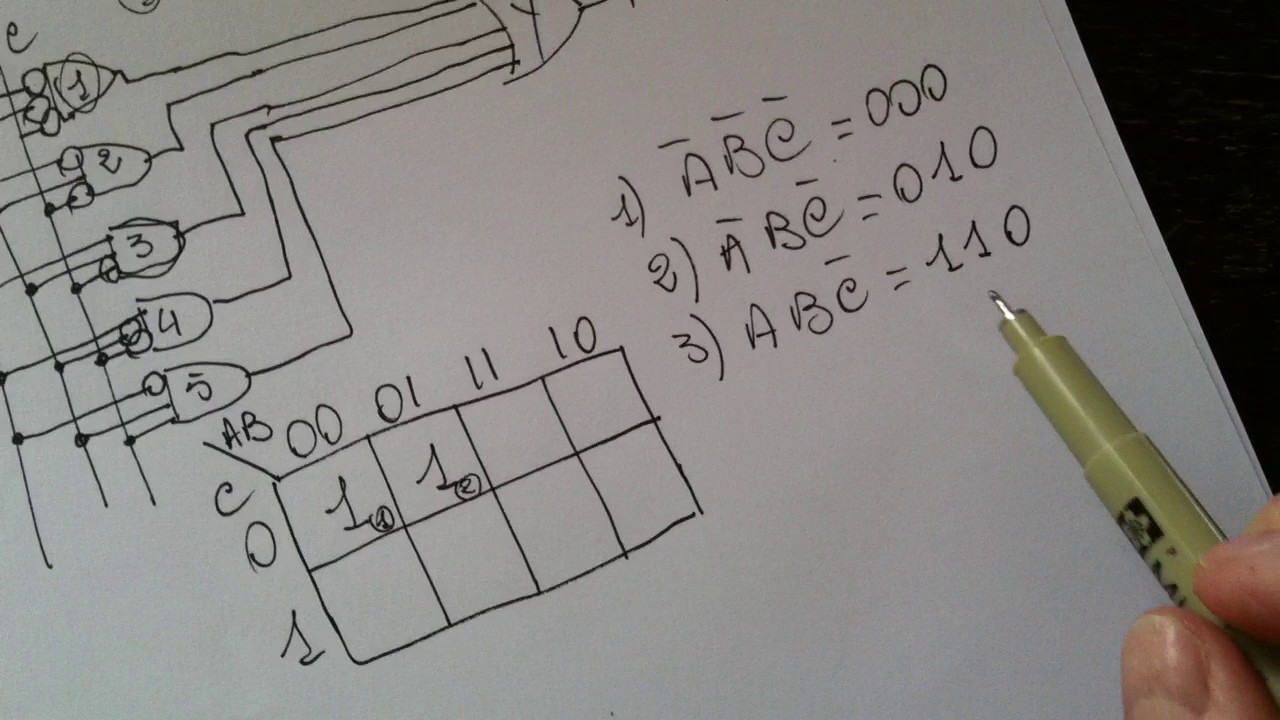 C
1
2
3
4
5
1) A̅ B̅ C̅ = 000
2) A̅ B C̅ = 010
3) A B C̅ = 110
AB 00 01 11 10
C
0 1① 1②
1